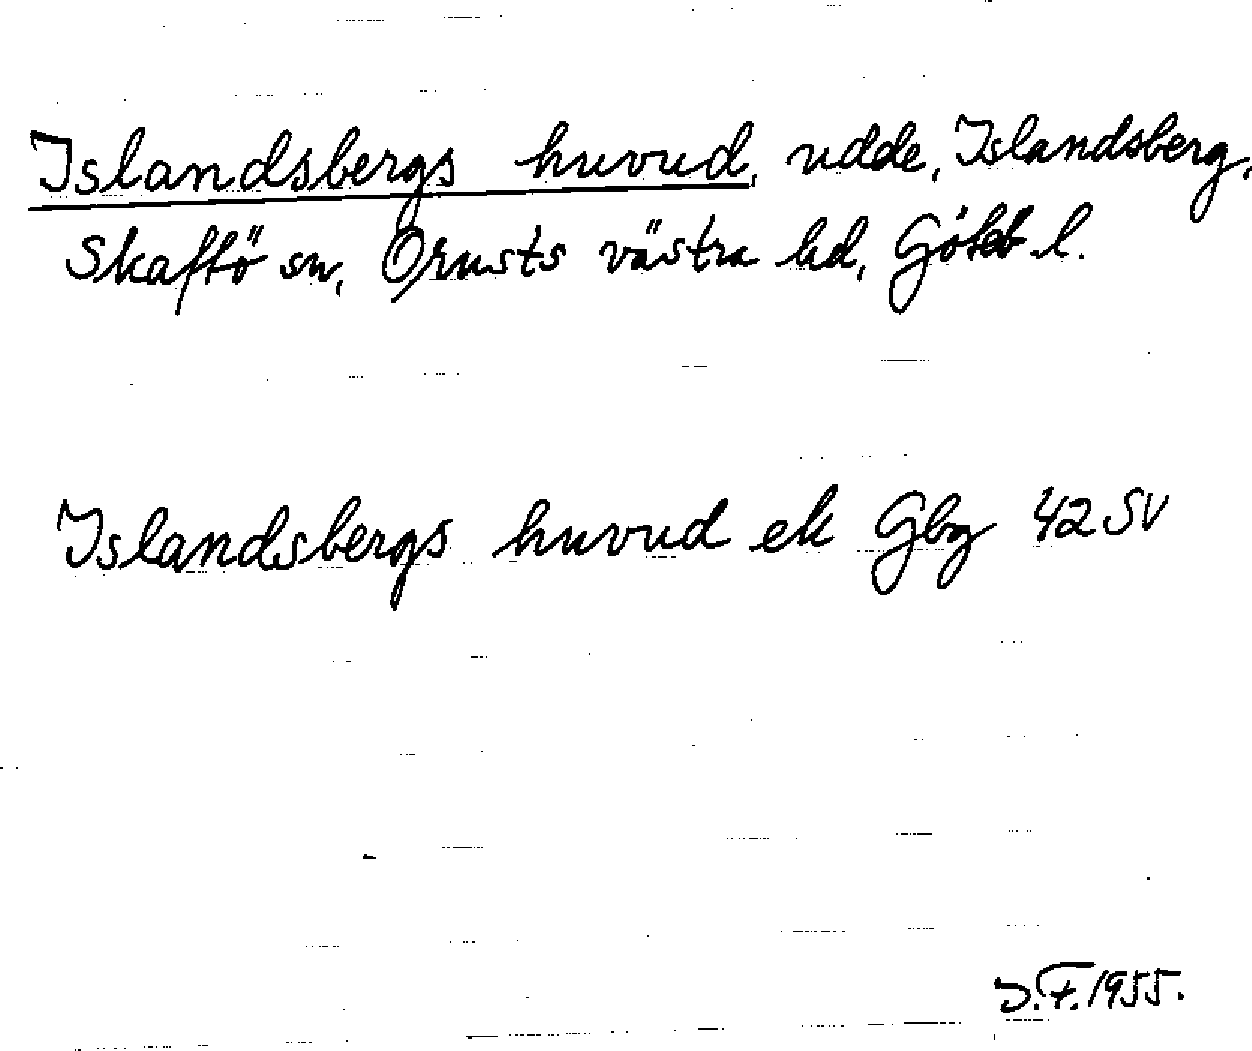 Islandsbergs huvud, udde, Islandsberg,
Skaftö sn, Orusts västra hd, Göteb l.
Islandsbergs huvud ek Gbg 42 SV
J.F. 1955.